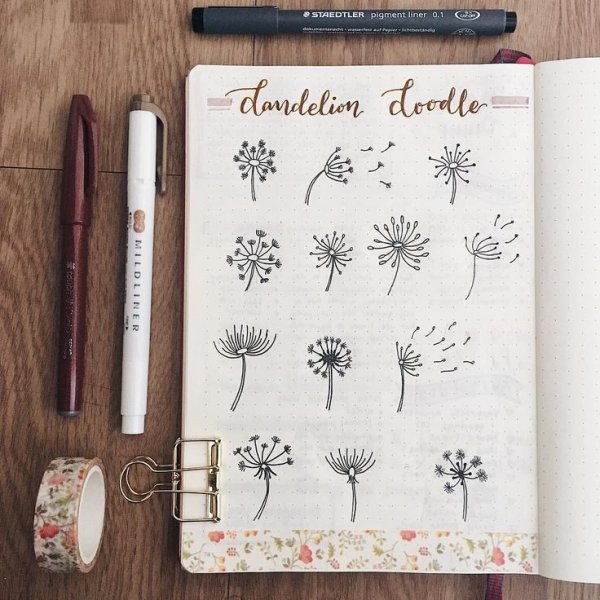 STAEDTLER pigment liner 0.1
dokumentenecht - wasserfest auf Papier - lichtbeständig
dandelion doodle
MILDLINER